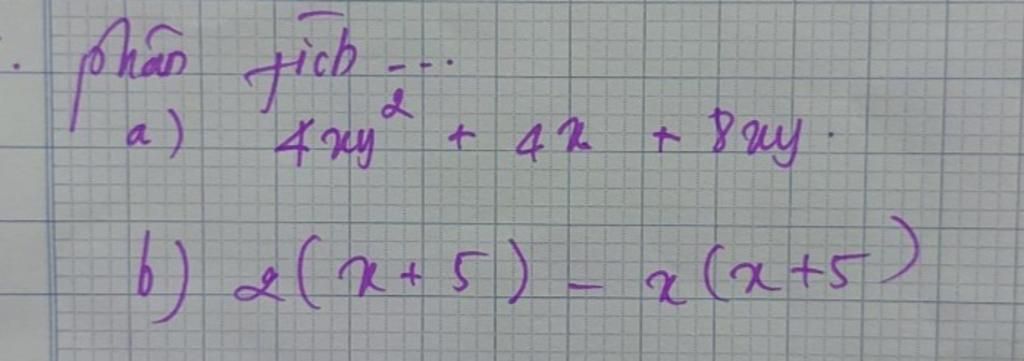 . phân tích ...
a) 4xy² + 4x + 8xy.
b) 2(x+5) - x(x+5)